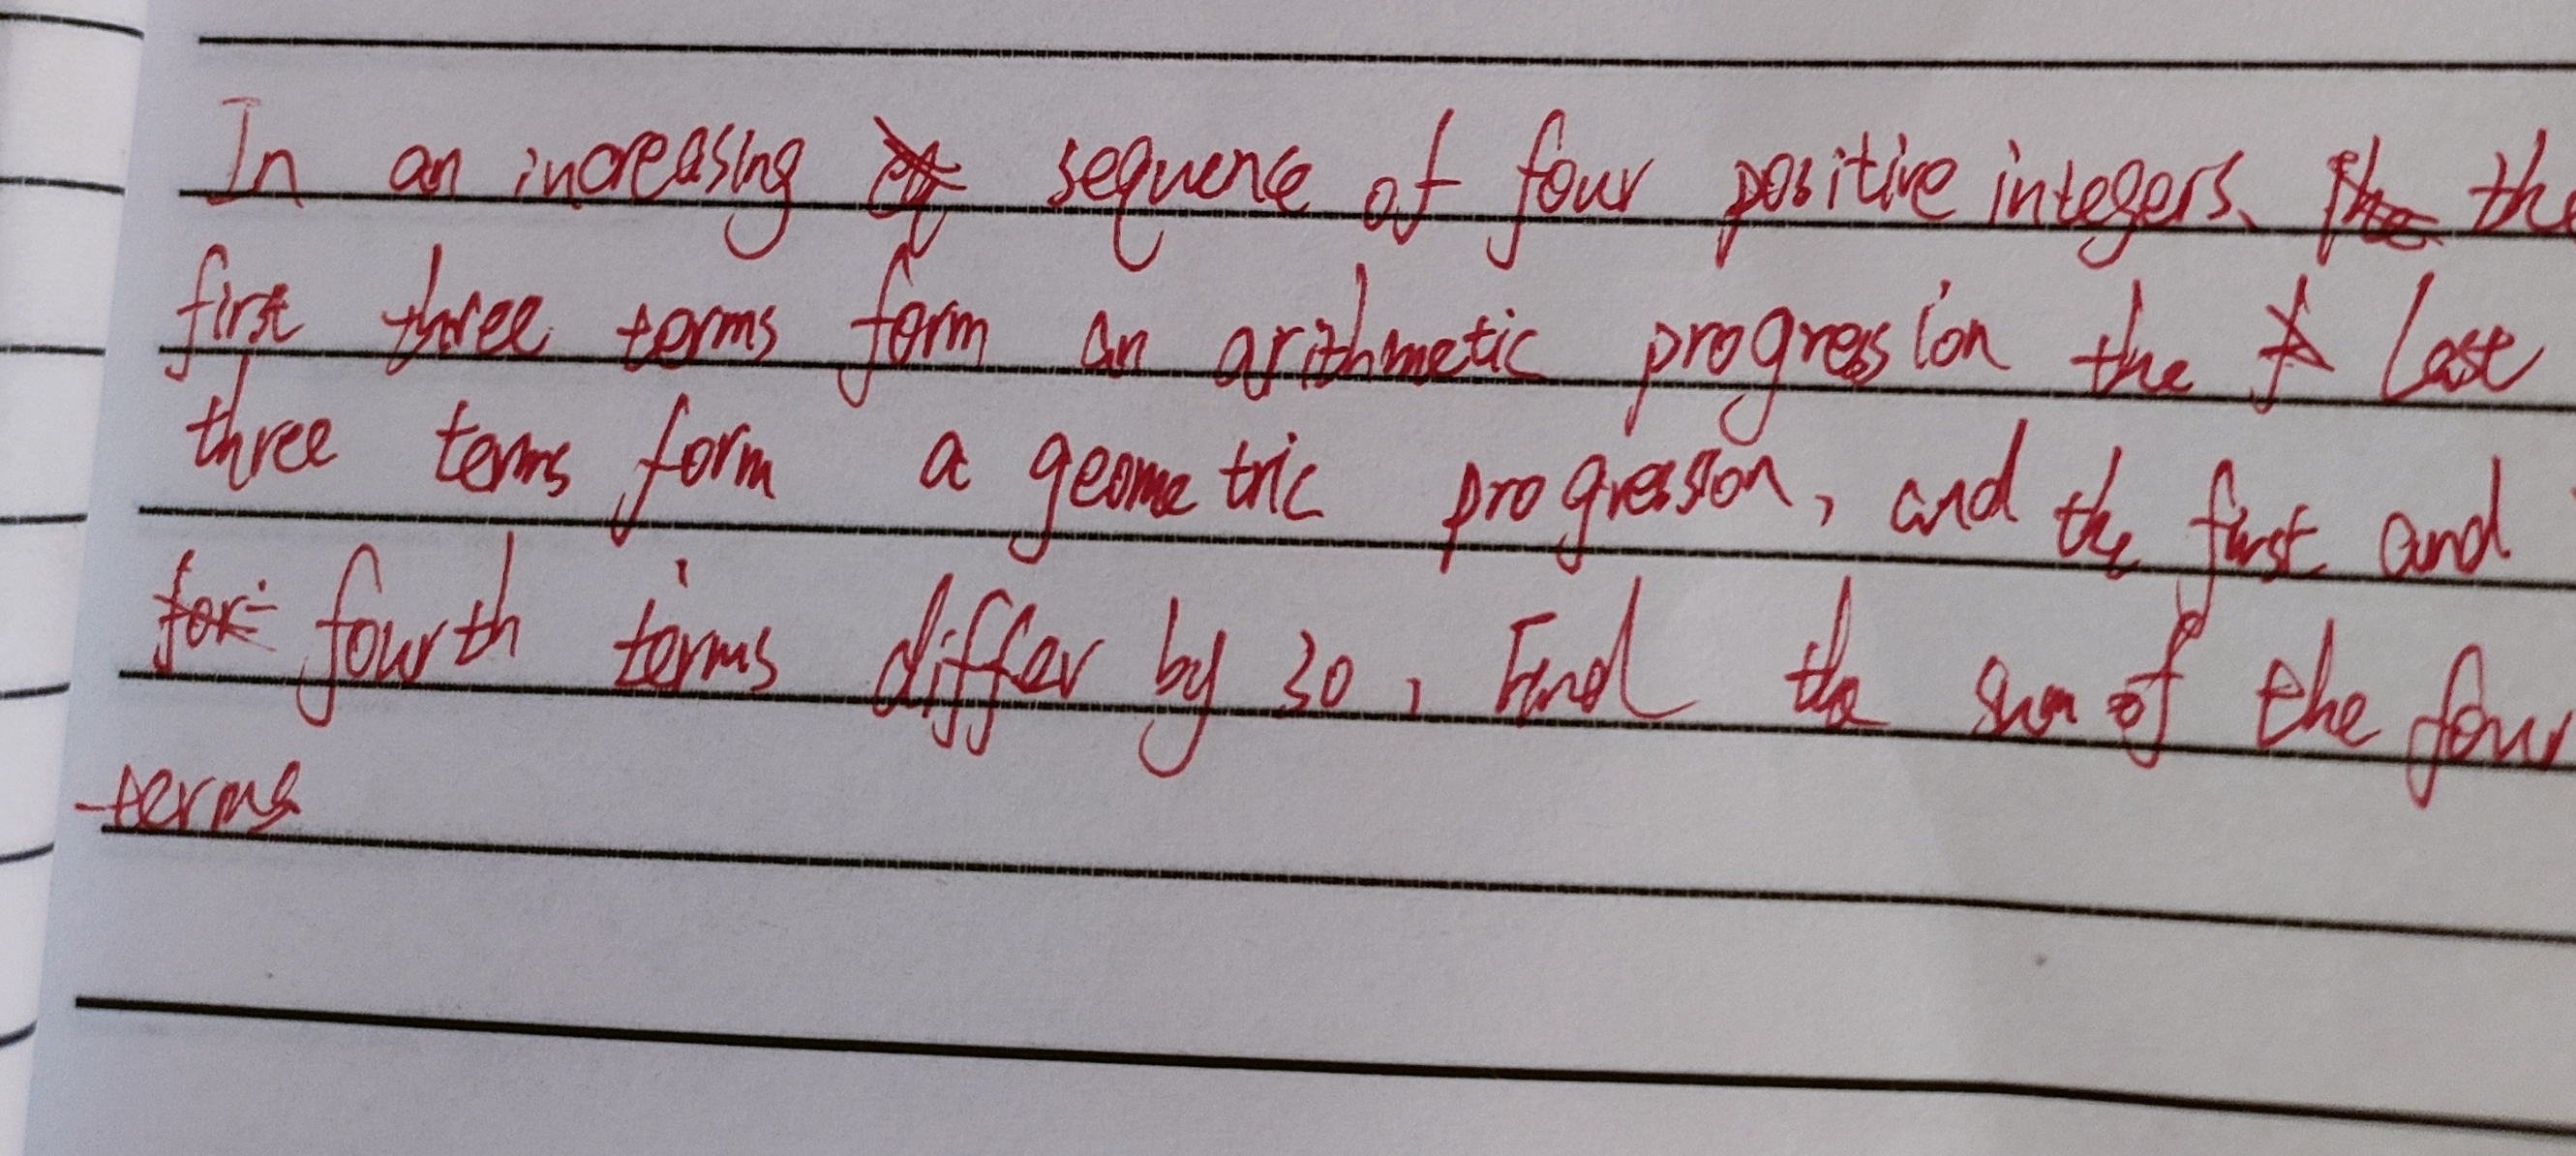 In an increasing sequence of four positive integers, the
first three terms form an arithmetic progression the last
three terms form a geometric progression, and the first and
fourth terms differ by 30, Find the sum of the four
terms